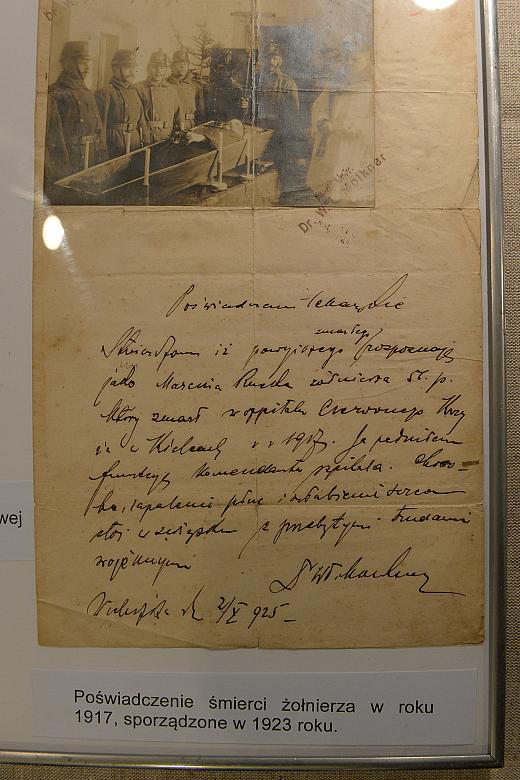 Dr.
Poświadczenie lekarskie
zmarłego
Stwierdzam iż powyższego rozpoznaję
jako Marcina Rucha żołnierza 5t. p.
który zmarł w szpitalu Czerwonego Krzy
ża w Kielcach w r 1917. Ja pełniłem
funkcję komendanta szpitala. Choro-
ba, zapalenie płuc i osłabienie serca
stoi w związku z przebytymi trudami
wojennymi
2/X 925
wej
Poświadczenie śmierci żołnierza w roku
1917, sporządzone w 1923 roku.